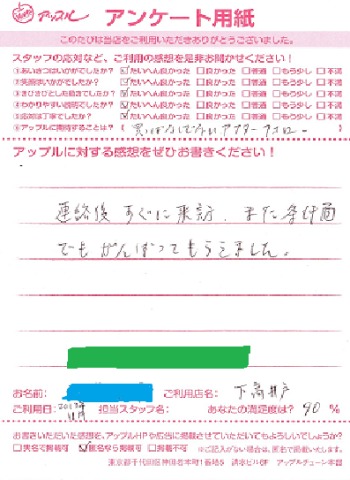 アップル アンケート用紙
このたびは当店をご利用いただきありがとうございました。
スタッフの応対など、ご利用の感想を是非お聞かせください!
①あいさつはいかがでしたか? ☑たいへん良かった □良かった □普通 □もう少し □不満
②笑顔はいかがでしたか? ☑たいへん良かった □良かった □普通 □もう少し □不満
③きびきびとした動きでしたか? ☑たいへん良かった □良かった □普通 □もう少し □不満
④わかりやすい説明でしたか? ☑たいへん良かった □良かった □普通 □もう少し □不満
⑤応対は丁寧でしたか? ☑たいへん良かった □良かった □普通 □もう少し □不満
⑥アップルに期待することは? (
アップルに対する感想をぜひお書きください!
連絡後 すぐに来訪、また各付面
でも がんばってもらえました。
お名前: ご利用店名: 下高井戸
ご利用日: 担当スタッフ名: あなたの満足度は? 90 %
お書きいただいた感想を、アップルHPや広告に掲載させていただいてもよろしいでしょうか?
□実名で掲載可 ☑匿名なら掲載可 □掲載不可 ※ご記入がない場合は、匿名掲載可とさせていただきます。
東京都千代田区神田岩本町1番地5 清水ビル8F アップルチェーン本部